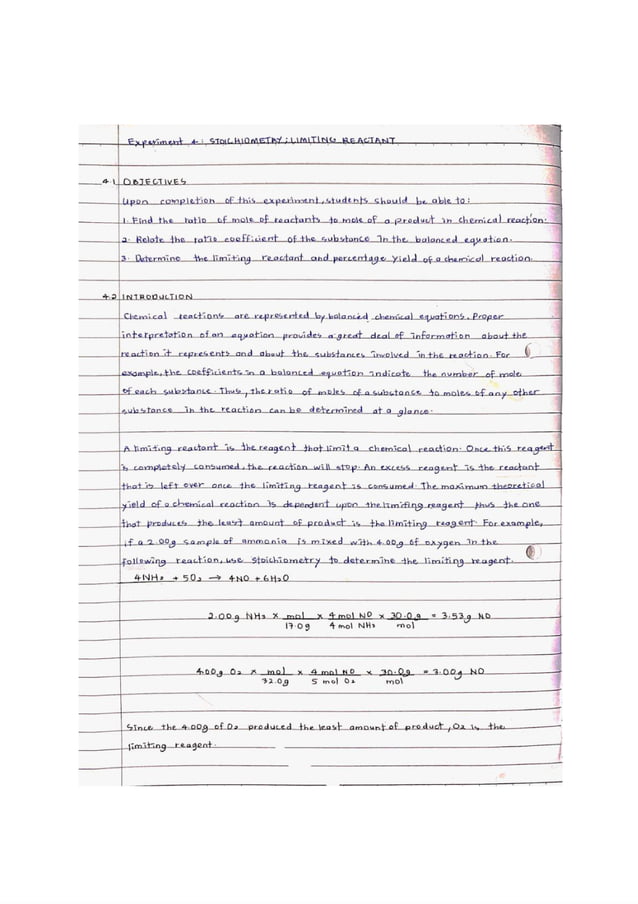 Experiment 4: STOICHIOMETRY: LIMITING REACTANT
4.1 OBJECTIVES
Upon completion of this experiment, students should be able to:
1. Find the ratio of mole of reactants to mole of a product in chemical reaction.
2. Relate the ratio coefficient of the substance in the balanced equation.
3. Determine the limiting reactant and percentage yield of a chemical reaction.
4.2 INTRODUCTION
Chemical reactions are represented by balanced chemical equations. Proper
interpretation of an equation provides a great deal of information about the
reaction it represents and about the substances involved in the reaction. For
example, the coefficients in a balanced equation indicate the number of mole
of each substance. Thus, the ratio of moles of a substance to moles of any other
substance in the reaction can be determined at a glance.
A limiting reactant is the reagent that limit a chemical reaction. Once this reagent
is completely consumed, the reaction will stop. An excess reagent is the reactant
that is left over once the limiting reagent is consumed. The maximum theoretical
yield of a chemical reaction is dependent upon the limiting reagent thus the one
that produces the least amount of product is the limiting reagent. For example,
if a 2.00g sample of ammonia is mixed with 4.00g of oxygen in the
following reaction, use stoichiometry to determine the limiting reagent.
4NH₃ + 5O₂ → 4NO + 6H₂O
2.00g NH₃ × mol × 4 mol NO × 30.0g = 3.53g NO
17.0g 4 mol NH₃ mol
4.00g O₂ × mol × 4 mol NO × 30.0g = 3.00g NO
32.0g 5 mol O₂ mol
Since the 4.00g of O₂ produced the least amount of product, O₂ is the
limiting reagent.